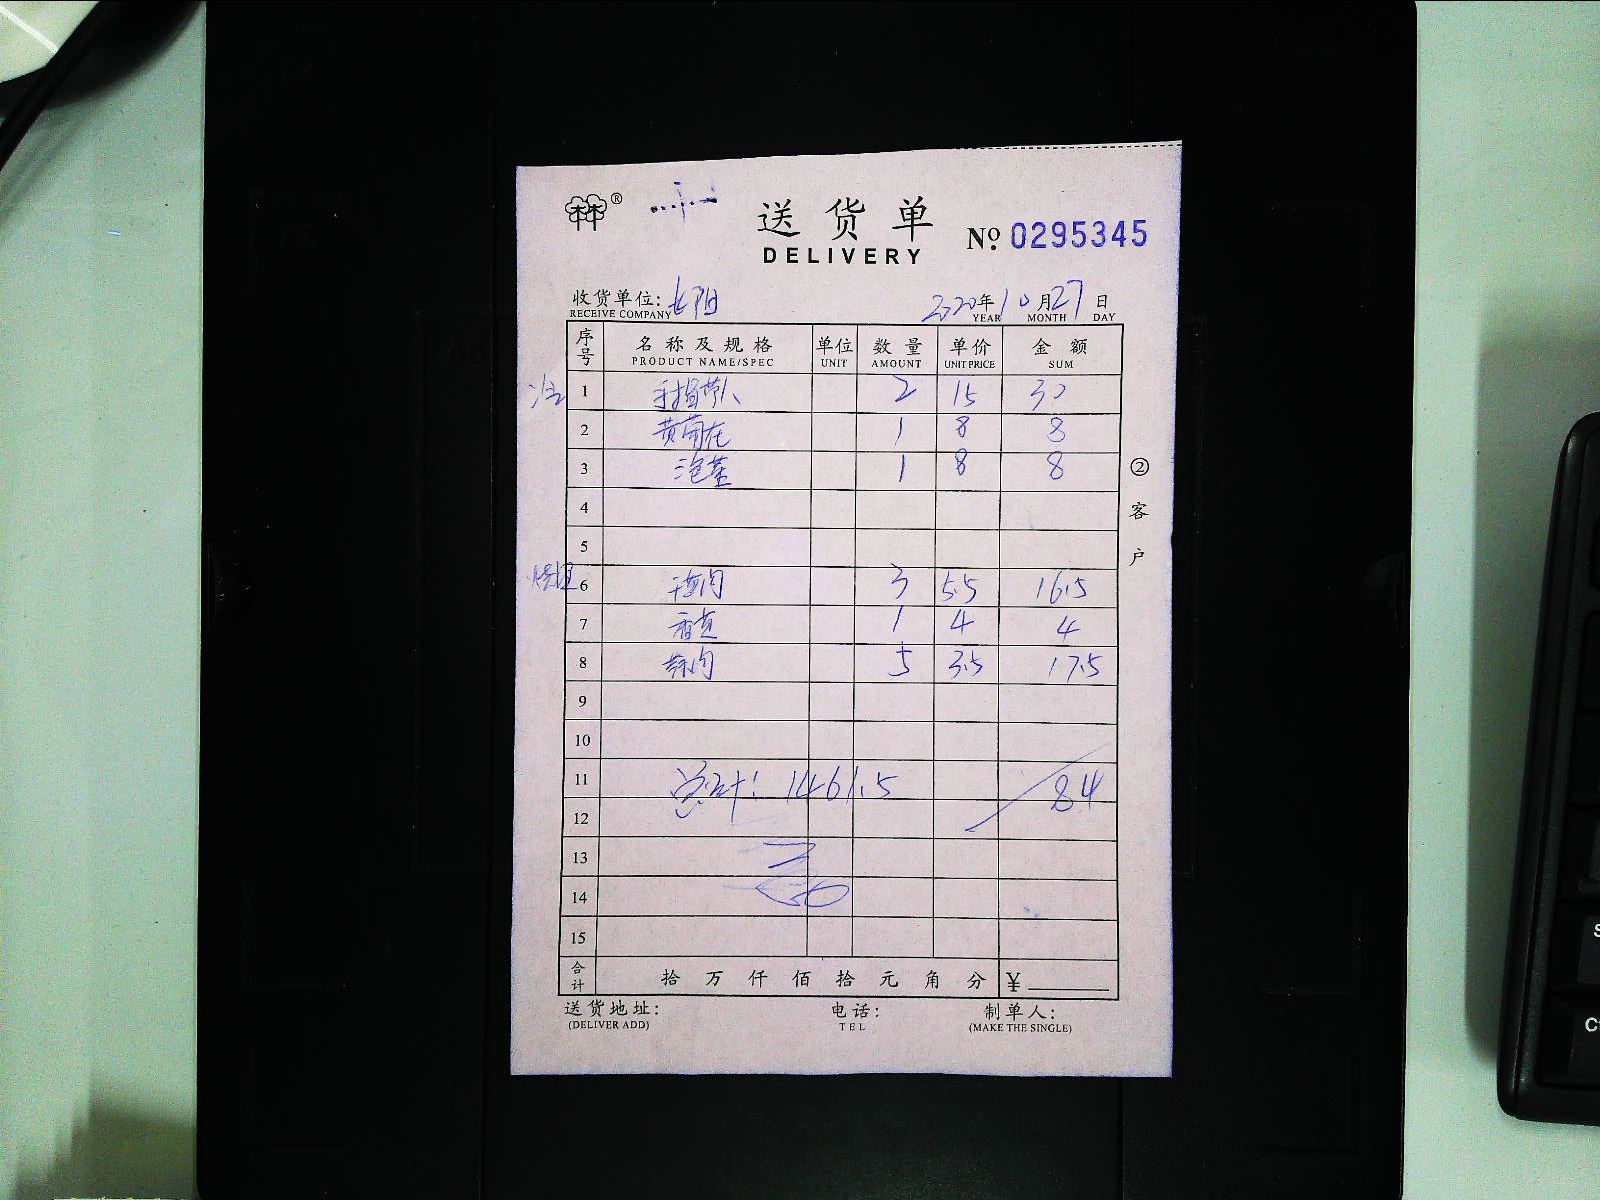 林®
送货单
DELIVERY
№ 0295345
收货单位: 长阳 2020年10月27日
RECEIVE COMPANY YEAR MONTH DAY
序号 名称及规格 单位 数量 单价 金额
PRODUCT NAME/SPEC UNIT AMOUNT UNIT PRICE SUM
1 2 15 30
2 1 8 8
3 泡姜 1 8 8
4
5
6 3 5.5 16.5
7 1 4 4
8 5 3.5 17.5
9
10
11 总计: 1461.5 84
12
13
14
15
合计 拾万仟佰拾元角分 ¥
送货地址: 电话: 制单人:
(DELIVER ADD) TEL (MAKE THE SINGLE)
②客户